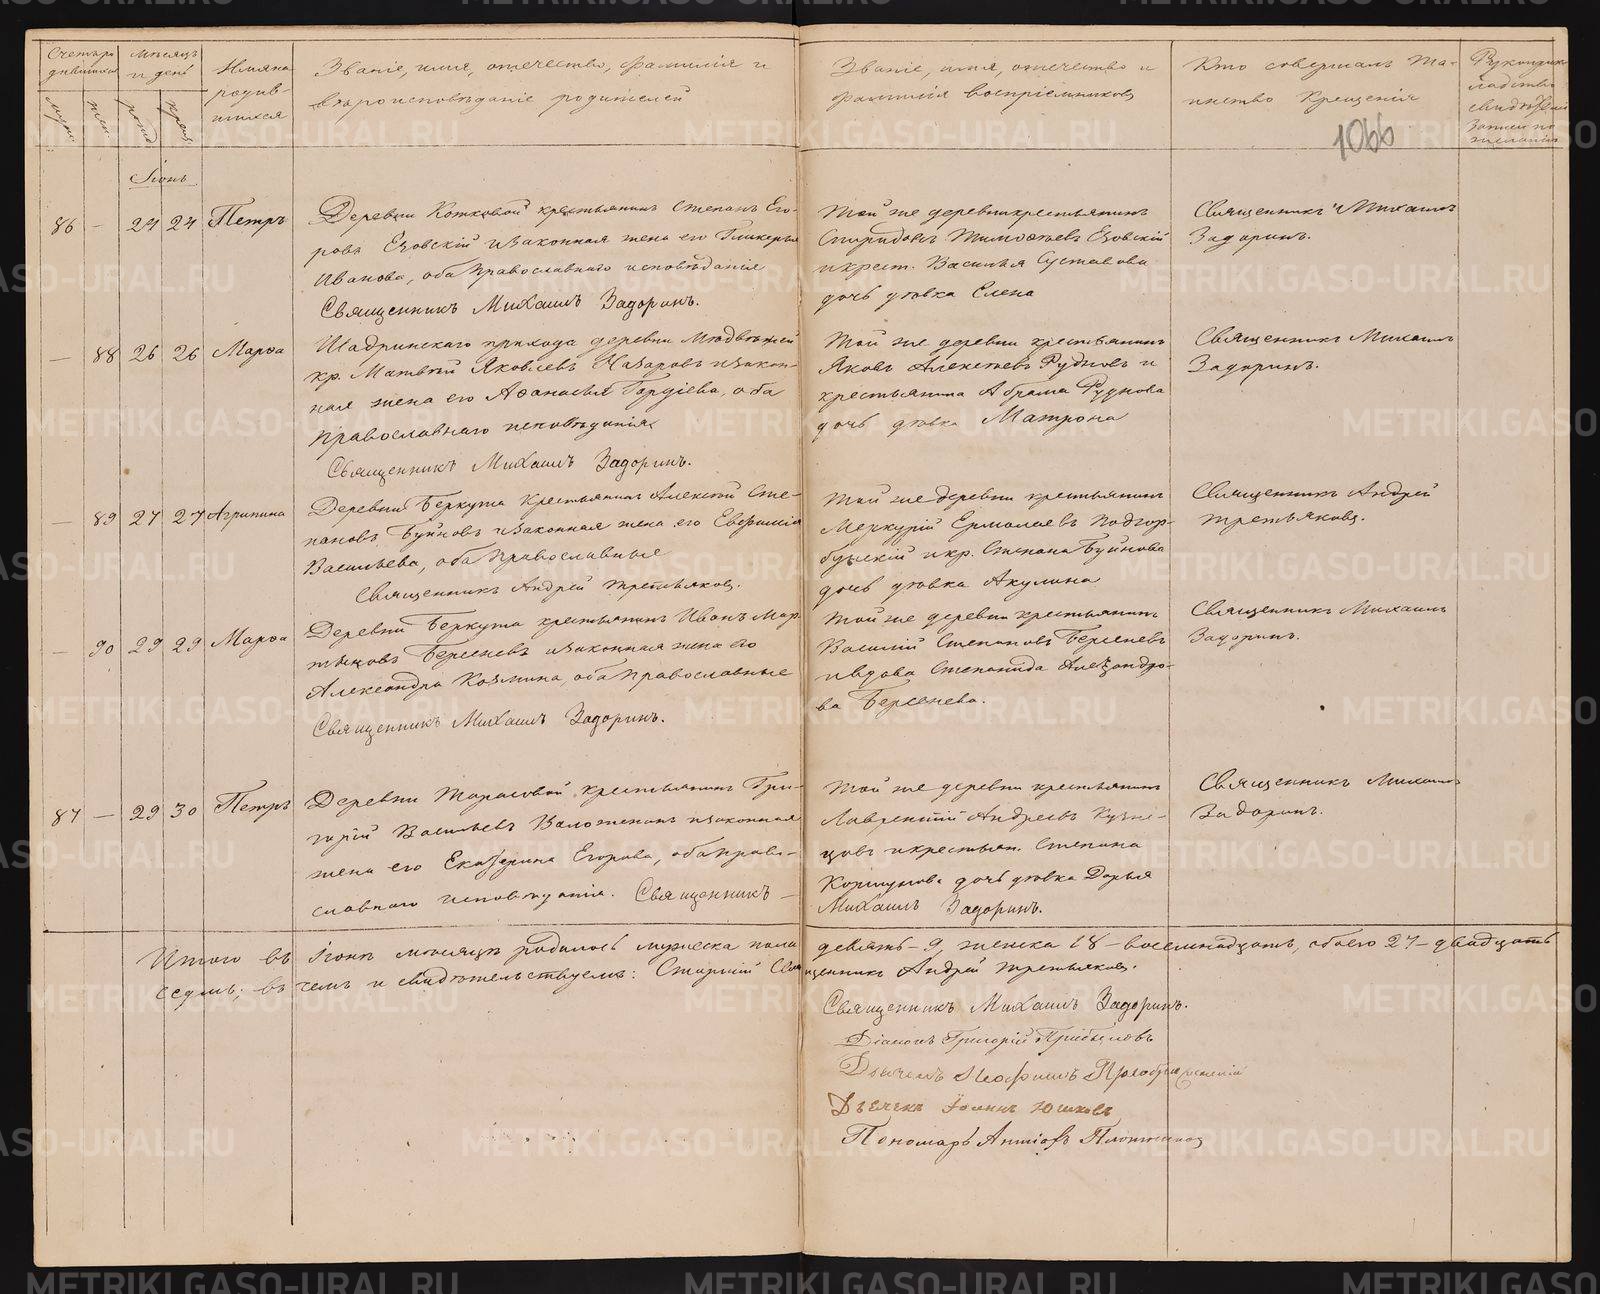 Счетъ ро-
дившихся
Мѣсяцъ
и день
Имяна
родив-
шихся
Званіе, имя, отечество, фамилія и
вѣроисповѣданіе родителей
Званіе, имя, отечество и
фамилія воспріемниковъ
Кто совершалъ та-
инство Крещенія
свидѣтел
записи по
желанію
муж.
жен.
рожд.
крещ.
1066
Іюнь
86 — 24 24 Петръ
Деревни Котковой крестьянинъ Степанъ Его-
ровъ Езовскій и законная жена его Гликерья
Иванова, оба православнаго исповѣданія
Священникъ Михаилъ Задоринъ.
Той же деревни крестьянинъ
Спиридонъ Тимофеевъ Езовскій
и крест. Василья Суставова
дочь дѣвка Елена
Священникъ Михаилъ
Задоринъ.
— 88 26 26 Марѳа
Шадринскаго прихода деревни
кр. Матвѣй Яковлевъ Назаровъ и закон-
ная жена его Аѳанасья Гордіева, оба
православнаго исповѣданія
Священникъ Михаилъ Задоринъ.
Той же деревни крестьянинъ
Яковъ Алексѣевъ Рудновъ и
крестьянина Абрама Руднова
дочь дѣвка Матрона
Священникъ Михаилъ
Задоринъ.
— 89 27 27 Агрипина
Деревни Беркута крестьянинъ Алексѣй Сте-
пановъ Буйновъ и законная жена его Евфимія
Васильева, оба православные
Священникъ Андрей Третьяковъ.
Той же деревни крестьянинъ
Меркурій Ермолаевъ Подгор-
бунскій и кр. Степана Буйнова
дочь дѣвка Акулина
Священникъ Андрей
Третьяковъ.
— 90 29 29 Марѳа
Деревни Беркута крестьянинъ Иванъ Мар-
тыновъ Берсеневъ и законная жена его
Александра Козмина, оба православные
Священникъ Михаилъ Задоринъ.
Той же деревни крестьянинъ
Василій Степановъ Берсеневъ
и вдова Степанида Александро-
ва Берсенева.
Священникъ Михаилъ
Задоринъ.
87 — 29 30 Петръ
Деревни Тарасовой крестьянинъ Гри-
горій Васильевъ Валоженинъ и законная
жена его Екатерина Егорова, оба право-
славнаго исповѣданія. Священникъ —
Михаилъ Задоринъ.
Той же деревни крестьянинъ
Лаврентій Андреевъ Кузне-
цовъ и крестьян. Степана
Коршунова дочь дѣвка Дарья
Священникъ Михаилъ
Задоринъ.
Итого въ Іюнѣ мѣсяцѣ родилось мужеска пола девять — 9, женска 18 — восемнадцать, обоего 27 — двадцать
седмь; въ чемъ и свидѣтельствуемъ: Старшій Священникъ Андрей Третьяковъ.
Священникъ Михаилъ Задоринъ.
Діаконъ Григорій Прибылевъ
Дьячекъ Преображенскій
Дьячекъ Іоаннъ Юшковъ
Пономарь Антіохъ Плотниковъ
METRIKI.GASO-URAL.RU